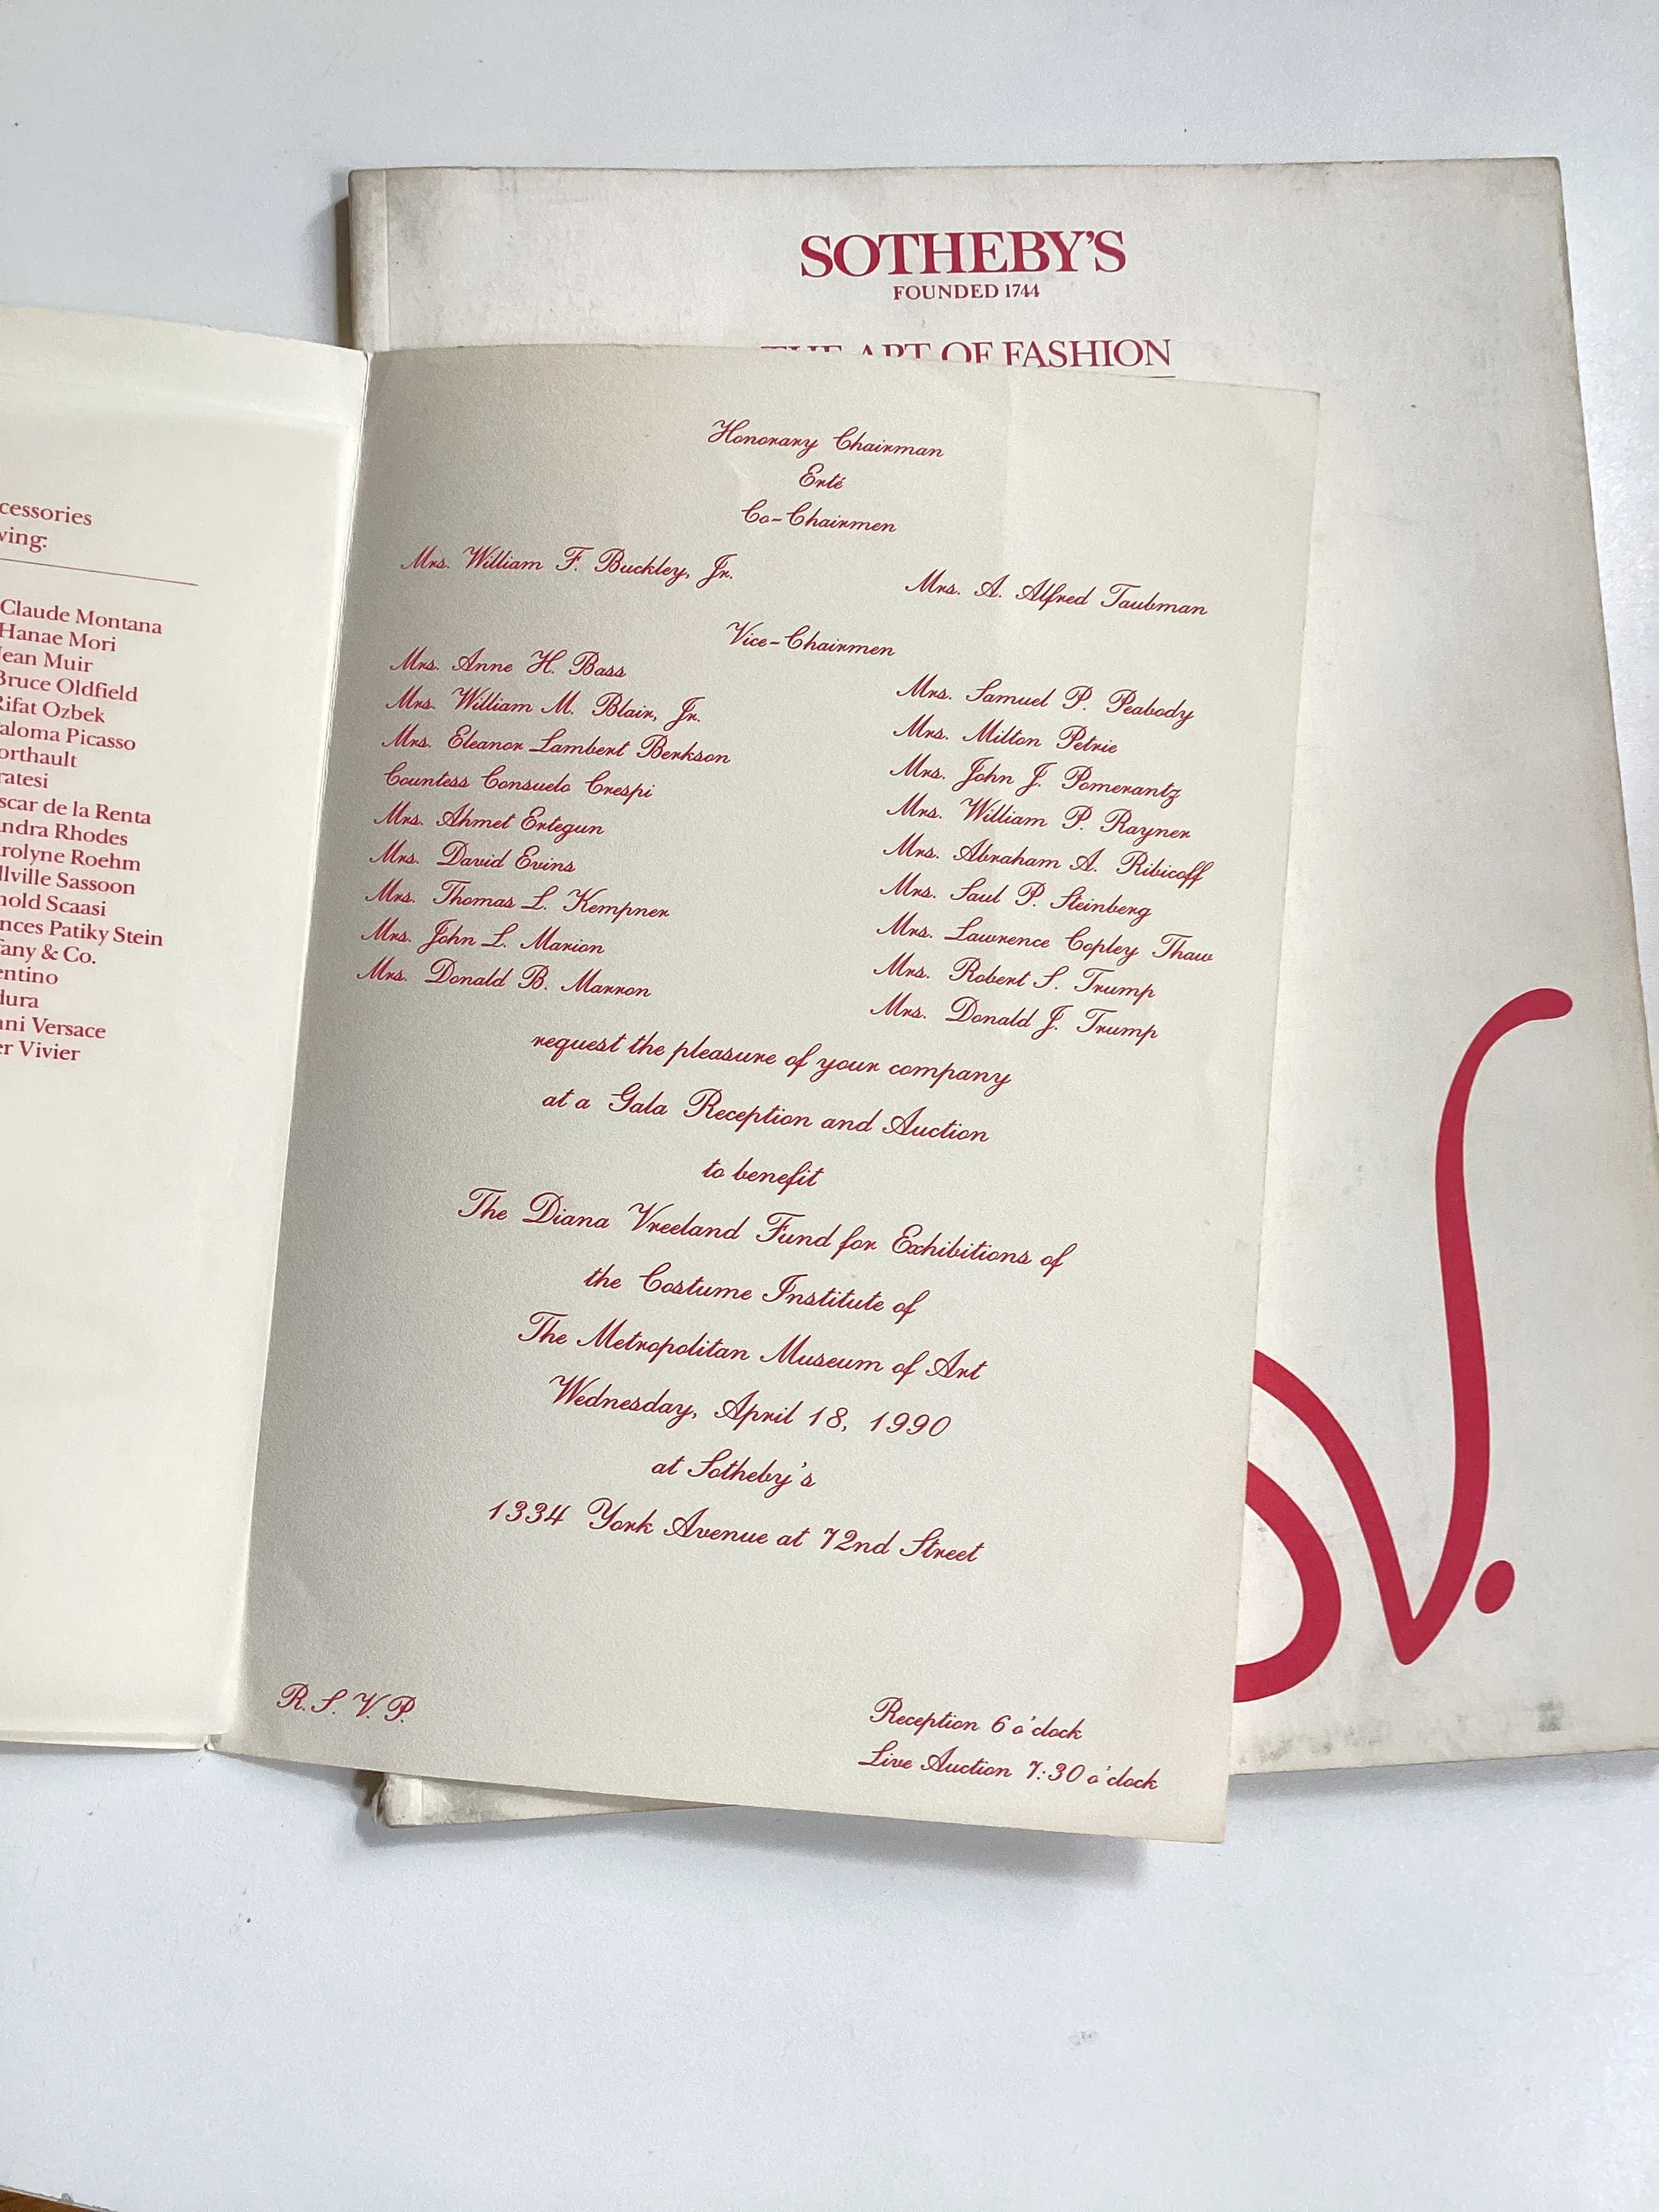 SOTHEBY'S
FOUNDED 1744
THE ART OF FASHION
wing:
Claude Montana
Hanae Mori
Jean Muir
Bruce Oldfield
Rifat Ozbek
Picasso
de la Renta
Rhodes
Roehm
Sassoon
Scaasi
Patiky Stein
& Co.
Versace
Vivier
Honorary Chairman
Erté
Co-Chairmen
Mrs. William F. Buckley, Jr.
Mrs. A. Alfred Taubman
Vice-Chairmen
Mrs. Anne H. Bass
Mrs. William M. Blair, Jr.
Mrs. Eleanor Lambert Berkson
Countess Consuelo Crespi
Mrs. Ahmet Ertegun
Mrs. David Evins
Mrs. Thomas L. Kempner
Mrs. John L. Marion
Mrs. Donald B. Marron
Mrs. Samuel P. Peabody
Mrs. Milton Petrie
Mrs. John J. Pomerantz
Mrs. William P. Rayner
Mrs. Abraham A. Ribicoff
Mrs. Saul P. Steinberg
Mrs. Lawrence Copley Thaw
Mrs. Robert S. Trump
Mrs. Donald J. Trump
request the pleasure of your company
at a Gala Reception and Auction
to benefit
The Diana Vreeland Fund for Exhibitions of
the Costume Institute of
The Metropolitan Museum of Art
Wednesday, April 18, 1990
at Sotheby's
1334 York Avenue at 72nd Street
R.S.V.P.
Reception 6 o'clock
Live Auction 7:30 o'clock
V.